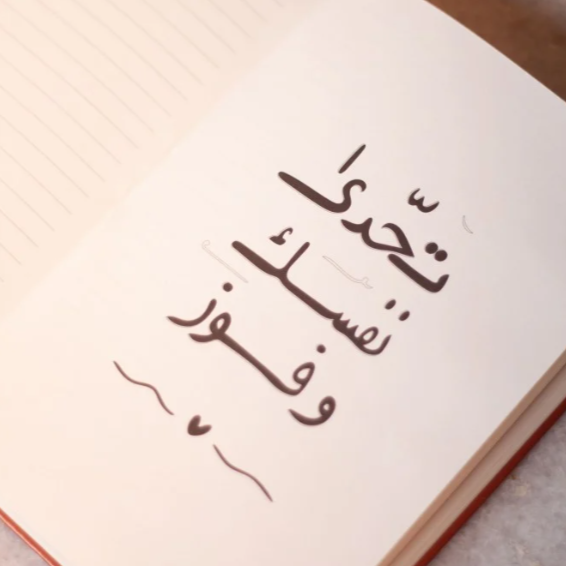 تحدّىٰ
نفسك
وفوز